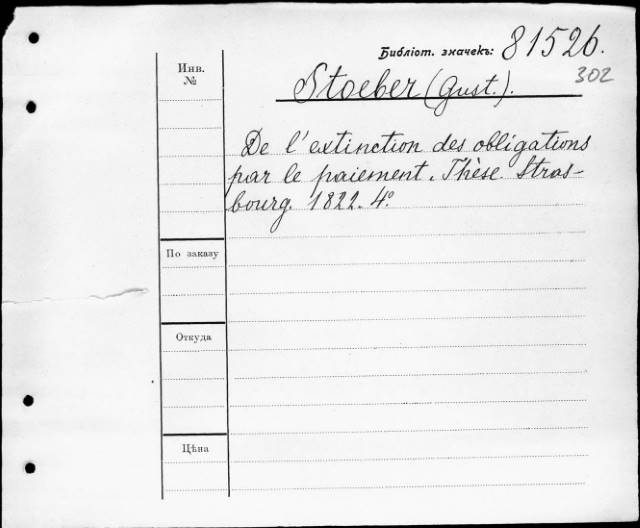 Библіот. значекъ: 81526.
302
Инв.
№
Stoeber (Gust.).
De l'extinction des obligations
par le paiement. Thèse. Stras-
bourg. 1822. 4°
По заказу
Откуда
Цѣна